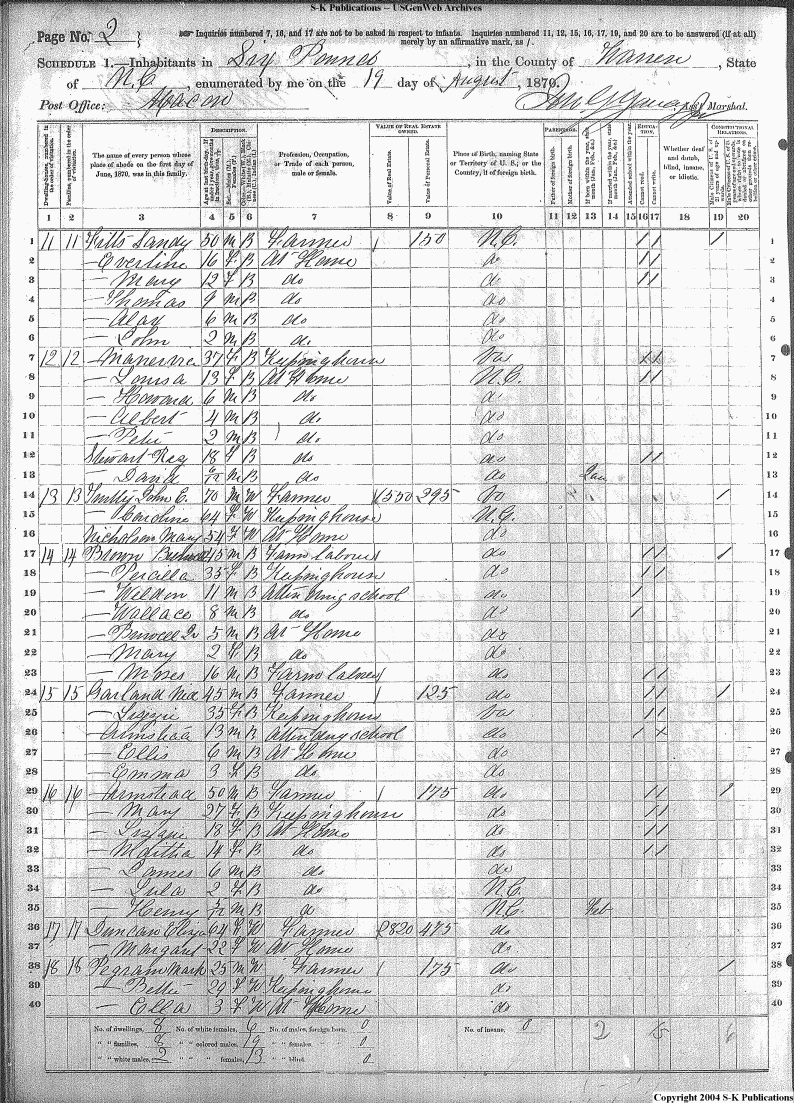 S-K Publications -- USGenWeb Archives
Page No. 2
Inquiries numbered 7, 16, and 17 are not to be asked in respect to infants. Inquiries numbered 11, 12, 15, 16, 17, 19, and 20 are to be answered (if at all) merely by an affirmative mark, as /.
SCHEDULE 1.—Inhabitants in Six Pounds, in the County of Warren, State
of N.C., enumerated by me on the 19 day of August, 1870.
Post Office: Macon
Ass't Marshal.
DESCRIPTION. VALUE OF REAL ESTATE OWNED. PARENTAGE. EDUCATION. CONSTITUTIONAL RELATIONS.
The name of every person whose place of abode on the first day of June, 1870, was in this family.
Profession, Occupation, or Trade of each person, male or female.
Value of Real Estate.
Value of Personal Estate.
Place of Birth, naming State or Territory of U. S.; or the Country, if of foreign birth.
Father of foreign birth.
Mother of foreign birth.
Attended school within the year.
Cannot read.
Cannot write.
Whether deaf and dumb, blind, insane, or idiotic.
1 2 3 4 5 6 7 8 9 10 11 12 13 14 15 16 17 18 19 20
1 11 11 Fitts Sandy 50 M B Farmer 150 N.C. / / / 1
2 — Everline 16 F B At Home do / / 2
3 — Mary 12 F B do do / / 3
4 — Thomas 9 M B do do 4
5 — 6 M B do do 5
6 — John 2 M B do do 6
7 12 12 — Manervia 37 F B Keeping house Va 7
8 — Louisa 13 F B At Home N.C. / / 8
9 — Howard 6 M B do do 9
10 — Albert 4 M B do do 10
11 — Peter 2 M B do do 11
12 Stewart 18 F B do do / / 12
13 — David M B do do Jan 13
14 13 13 John C. 70 M W Farmer 550 295 Va / 14
15 — Caroline 64 F W Keeping house N.C. 15
16 Nicholson Mary 54 F W At Home do 16
17 14 14 Brown 45 M B Farm laborer do / / / 17
18 — Percilla 35 F B Keeping house do / / 18
19 — Weldon 11 M B Attending school do / 19
20 — Wallace 8 M B do do / 20
21 — Burwell Jr 5 M B At Home do 21
22 — Mary 2 F B do do 22
23 — Moses 16 M B Farm laborer do / / 23
24 15 15 Garland Ned 45 M B Farmer 125 do / / / 24
25 — Lizzie 35 F B Keeping house Va / / 25
26 — 13 M B Attending school do 26
27 — Ellis 6 M B At Home do 27
28 — Emma 3 F B do do 28
29 16 16 — Armstead 50 M B Farmer 175 do / / / 29
30 — Mary 27 F B Keeping house do / / 30
31 — 18 F B At Home do / / 31
32 — Martha 14 F B do do / / 32
33 — James 6 M B do do 33
34 — Lula 2 F B do N.C. 34
35 — Henry M B do N.C. Feb 35
36 17 17 Duncan Eliza 64 F W Farmer 820 475 do 36
37 — Margaret 22 F W At Home do 37
38 18 18 Pegram Mark 25 M W Farmer 175 do / 38
39 — Bettie 24 F W Keeping house do 39
40 — Ella 3 F W At Home do 40
No. of dwellings, 8 No. of white females, 6 No. of males, foreign born. 0 No. of insane. 0 2 6
" " families, 8 " " colored males, 19 " " females. 0
" " white males, 2 " " females, 13 " " blind. 0
Copyright 2004 S-K Publications